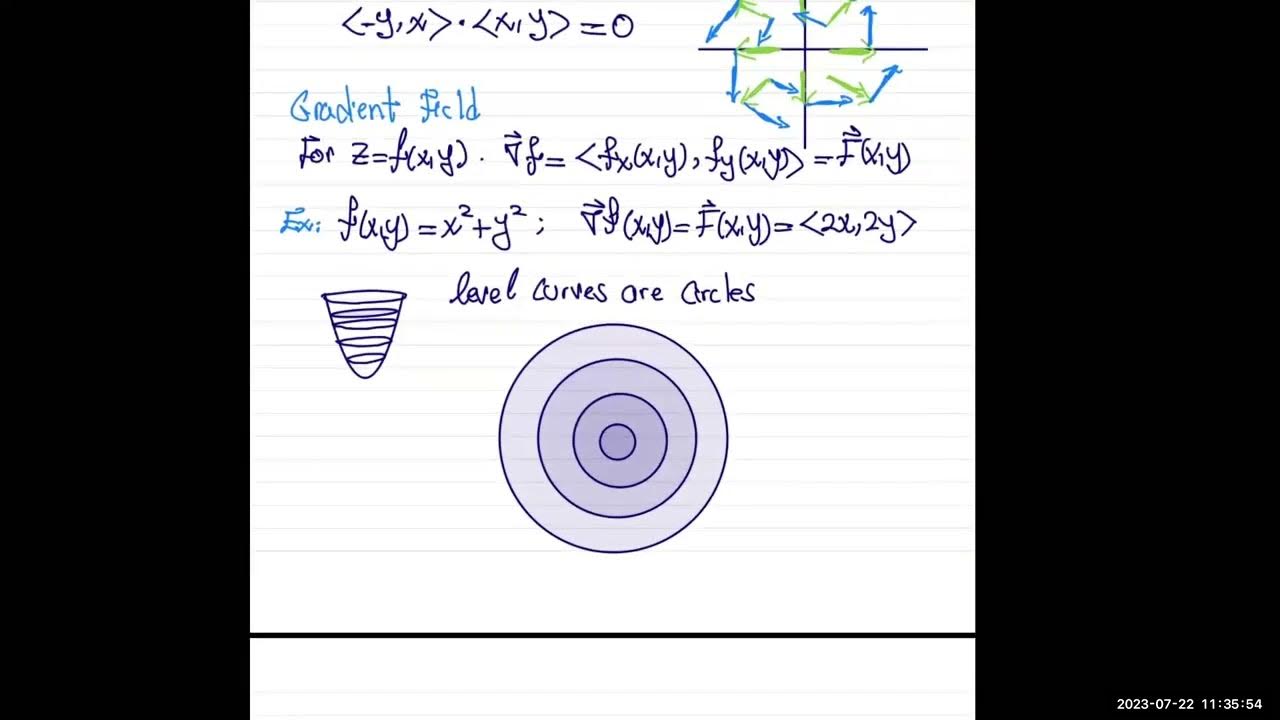 <-y, x> · <x, y> = 0
Gradient Field
For z=f(x,y). ∇⃗f = <fx(x,y), fy(x,y)> = F⃗(x,y)
Ex: f(x,y) = x²+y² ; ∇⃗f(x,y) = F⃗(x,y) = <2x, 2y>
level curves are circles
2023-07-22 11:35:54